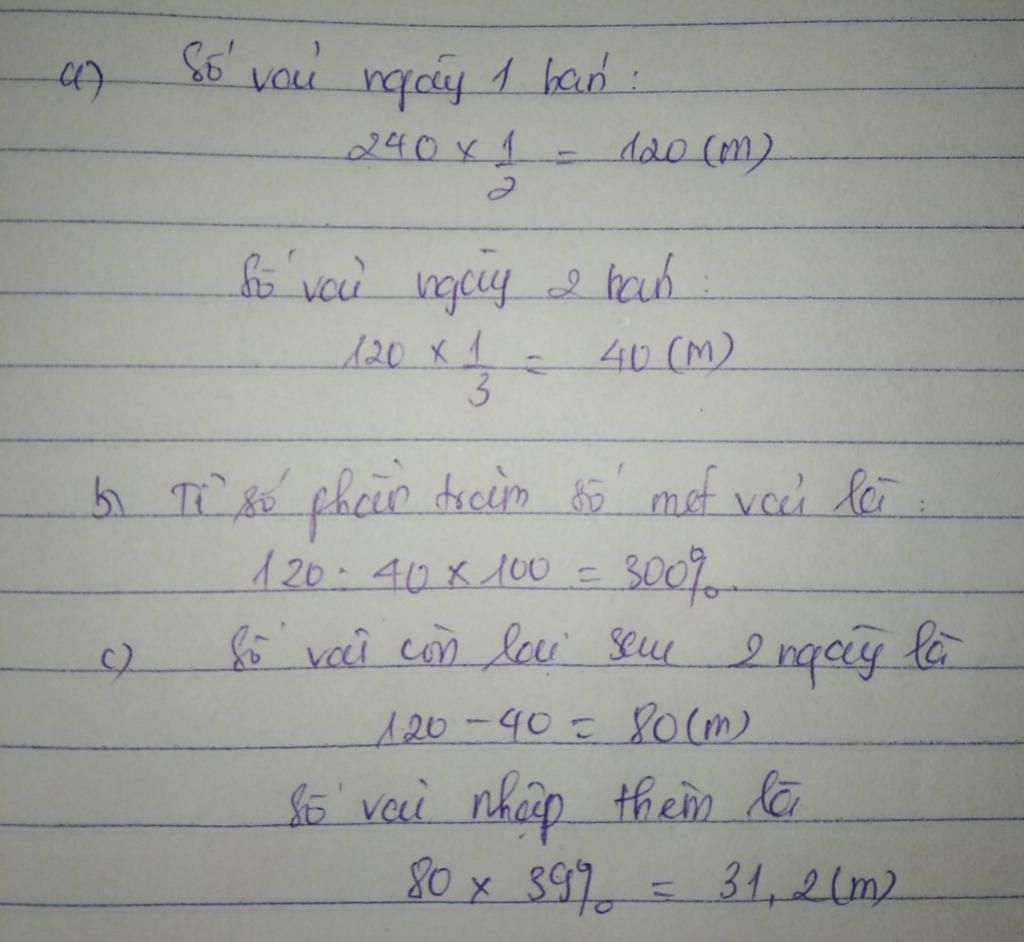 a) Số vải ngày 1 bán:
240 × 1/2 = 120 (m)
Số vải ngày 2 bán:
120 × 1/3 = 40 (m)
b) Tỉ số phần trăm số mét vải là:
120 : 40 × 100 = 300%.
c) Số vải còn lại sau 2 ngày là
120 - 40 = 80 (m)
Số vải nhập thêm là
80 × 39% = 31,2 (m)